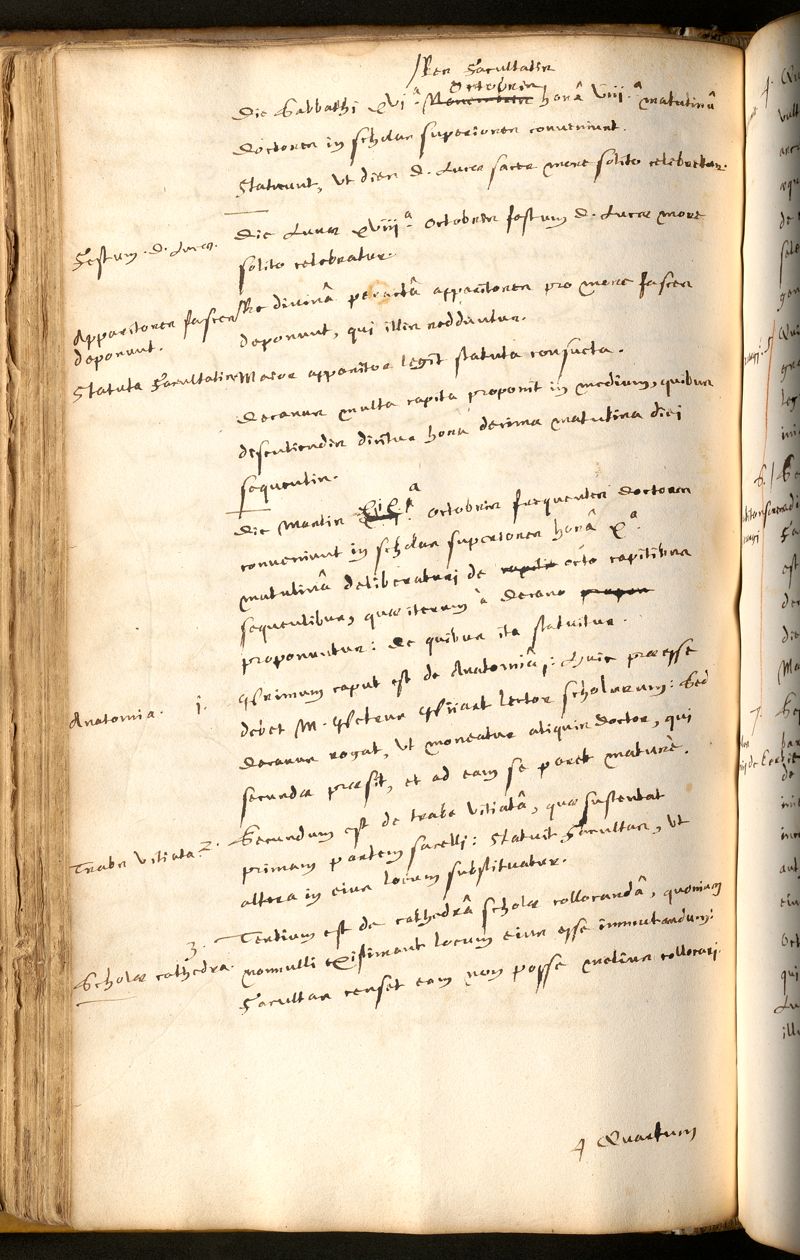 Res Facultatis
Octobris
Die Sabbathi xvi.a Novembris horâ viii.a matutinâ
doctores in scholas superiores conveniunt.
Statuunt, ut dies D. Lucæ sacer more solito celebretur.
Festum D. Lucæ.
Die Lunæ xviii.a octobris festum D. Lucæ more
solito celebratur.
Apparitores fasces
deponunt.
Re divinâ peractâ apparitores pro more fasces
deponunt, qui illis redduntur.
Statuta Facultatis
Maior apparitor legit statuta consueta.
Decanus multa capita proponit in medium, quibus
discutiendis dicitur hora decima matutina diei
sequentis.
Die Martis xix.a octobris frequentes doctores
conveniunt in scholas superiores horâ x.a
matutinâ deliberaturi de capitis octo capitibus
sequentibus, quæ iterum à Decano
proponuntur: de quibus ita statuitur.
Anatomia. 1.
Primum caput est de Anatomiâ 1: Huic præesse
debet M. Petrus Pijart lector scholarum: Sed
Decanus rogat, ut moneatur aliquis doctor, qui
secundæ præsit, et ad eam se paret maturè.
Trabs vitiata. 2.
Secundum est de trabe vitiatâ, quæ sustentat
primam partem sacelli: Statuit Facultas, ut
altera in eius locum substituatur.
Scholæ cathedra. 3.
Tertium est de cathedrâ scholæ collocandâ, quoniam
nonnulli existimant locum eius esse immutandum:
Facultas censet eam non posse melius collocari.
4 Quartum